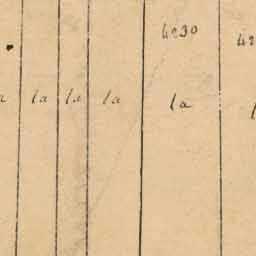 4230 42
a la la la la l